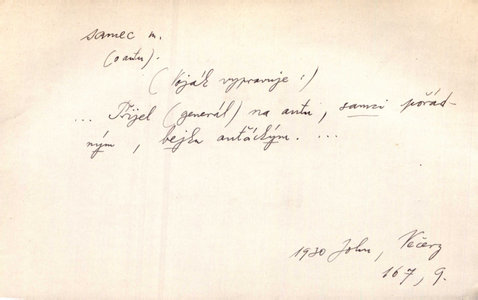 samec m.
(o autu).
(Voják vypravuje:)
... Přijel (generál) na autu, samci pořád-
ným, bejku autáckým. ...
1930 John, Večery
167, 9.